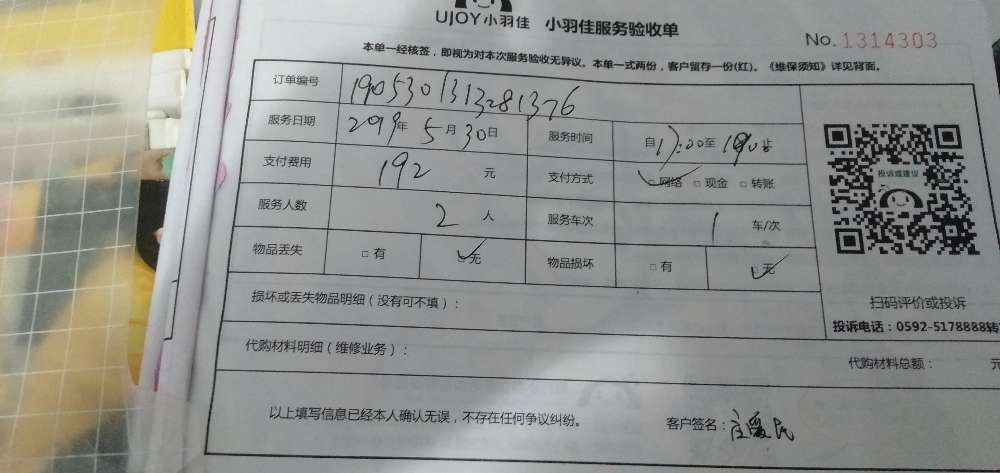 UJOY小羽佳 小羽佳服务验收单
No.1314303
本单一经核签，即视为对本次服务验收无异议。本单一式两份，客户留存一份(红)。《维保须知》详见背面。
订单编号 1905301313281376
服务日期 2019年5月30日 服务时间 自17:00至19:00止
支付费用 192 元 支付方式 □网络 □现金 □转账
服务人数 2人 服务车次 1 车/次
物品丢失 □有 □无 物品损坏 □有 □无
投诉或建议
扫码评价或投诉
投诉电话：0592-5178888转
损坏或丢失物品明细（没有可不填）：
代购材料明细（维修业务）： 代购材料总额： 元
以上填写信息已经本人确认无误，不存在任何争议纠纷。 客户签名：庄爱民